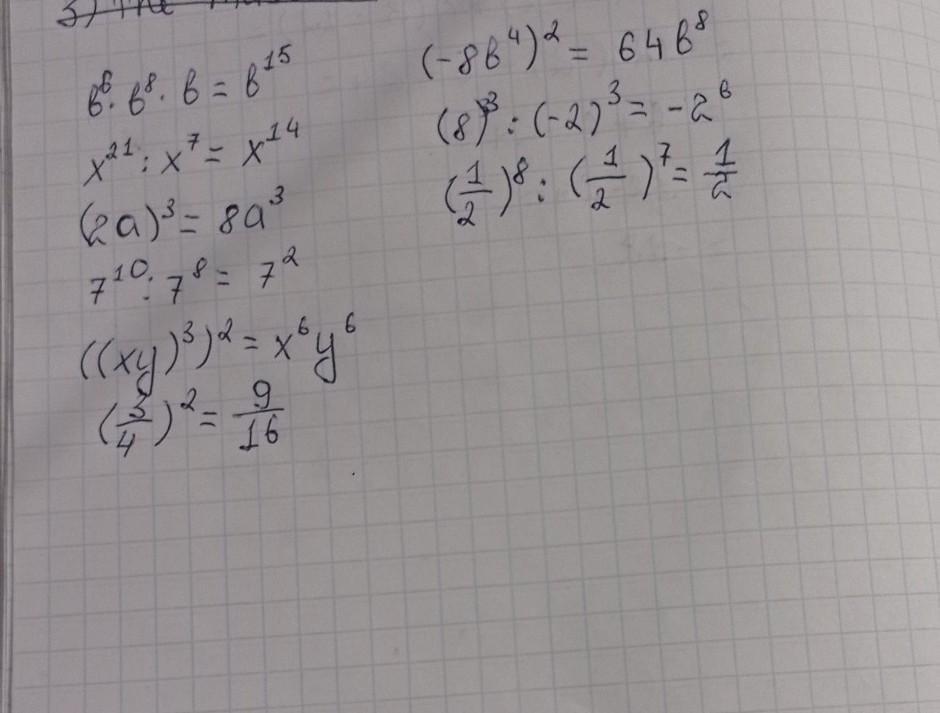 3) The
b⁶ · b⁸ · b = b¹⁵
x²¹ : x⁷ = x¹⁴
(2a)³ = 8a³
7¹⁰ : 7⁸ = 7²
((xy)³)² = x⁶y⁶
(3/4)² = 9/16
(-8b⁴)² = 64b⁸
(8)³ : (-2)³ = -2⁶
(1/2)⁸ : (1/2)⁷ = 1/2